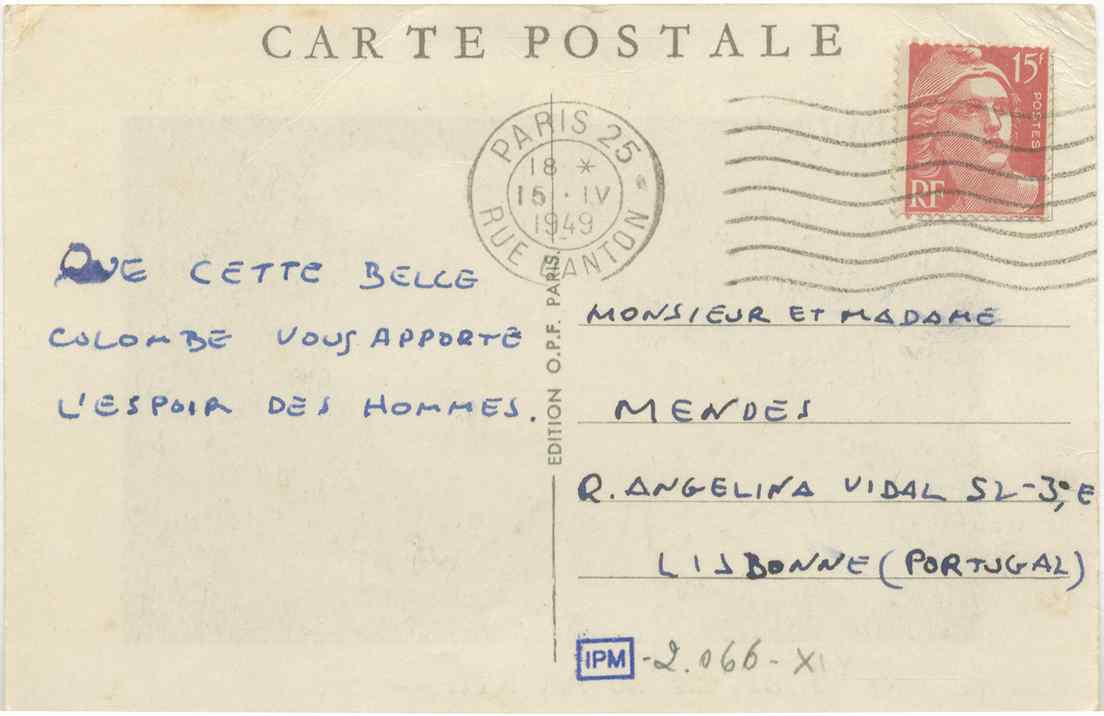 CARTE POSTALE
15F
POSTES
RF
PARIS 25
18 *
15 · IV
1949
RUE DANTON *
QUE CETTE BELLE
COLOMBE VOUS APPORTE
L'ESPOIR DES HOMMES.
EDITION O.P.F. PARIS.
MONSIEUR ET MADAME
MENDES
R. ANGELINA VIDAL 52-3º, E
LISBONNE (PORTUGAL)
IPM - 2.066 - XI